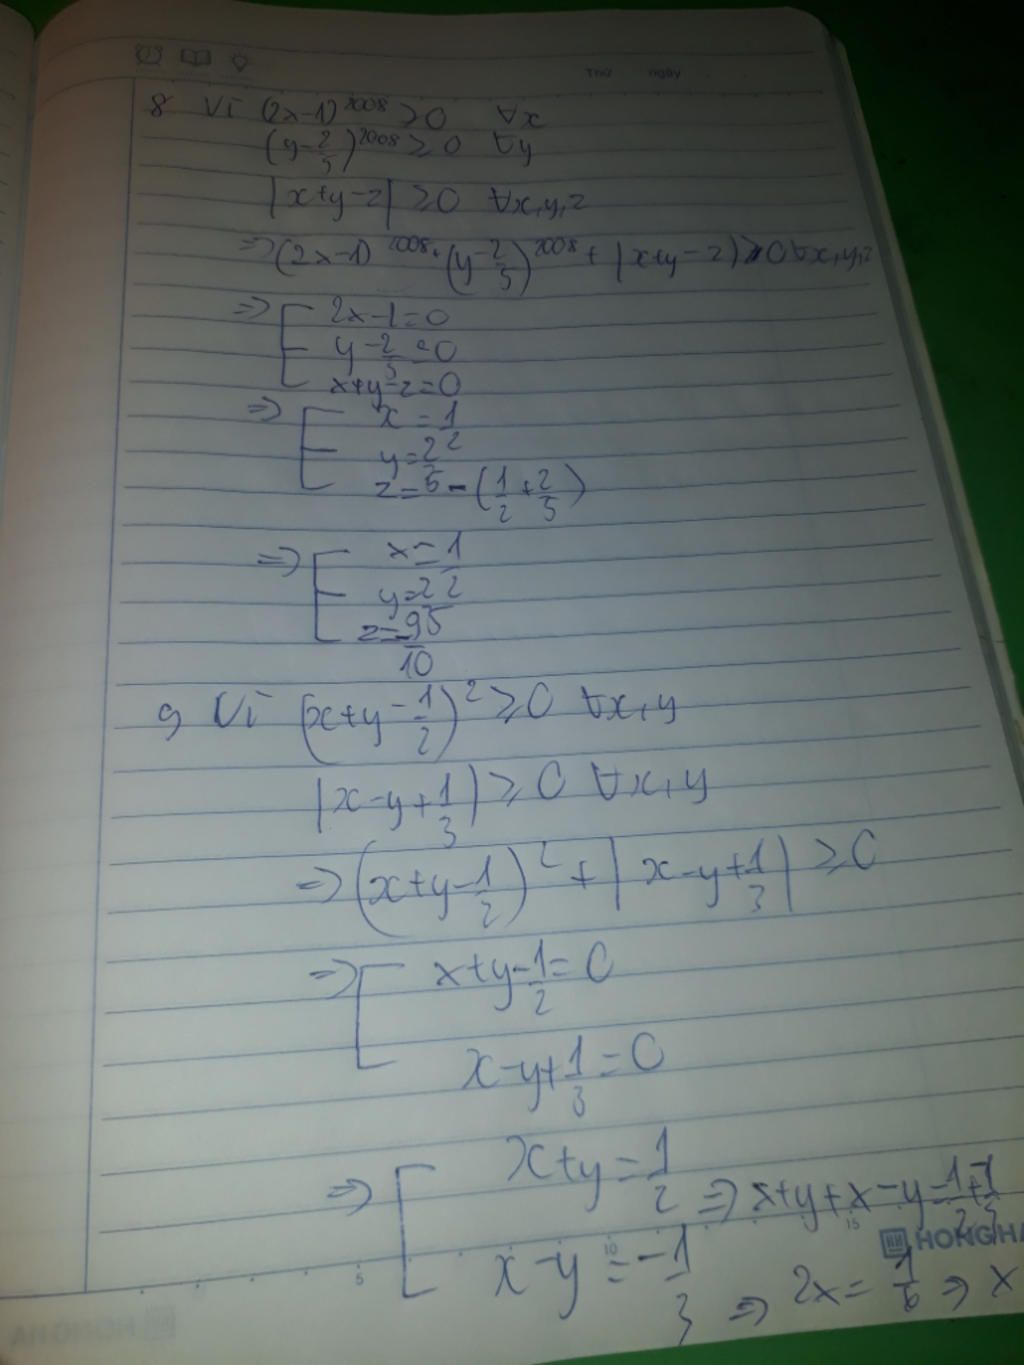 Thứ ngày
8 Vì (2x-1)^2008 ≥0 ∀x
(y-2/5)^2008 ≥0 ∀y
|x+y-z| ≥0 ∀x,y,z
=> (2x-1)^2008 + (y-2/5)^2008 + |x+y-z| ≥0 ∀x,y,z
=> [ 2x-1=0
y-2/5=0
x+y-z=0
=> [ x=1/2
y=2/5
z= -(1/2+2/5)
=> [ x=1/2
y=2
z=-95/10
9 Vì (x+y-1/2)^2 ≥0 ∀x,y
|x-y+1/3| ≥0 ∀x,y
=> (x+y-1/2)^2 + |x-y+1/3| ≥0
=> [ x+y-1/2=0
x-y+1/3=0
=> [ x+y=1/2 => x+y+x-y=1/2+-1/3
x-y=-1/3 => 2x=1/6 => x
5 10 15
HONG HA